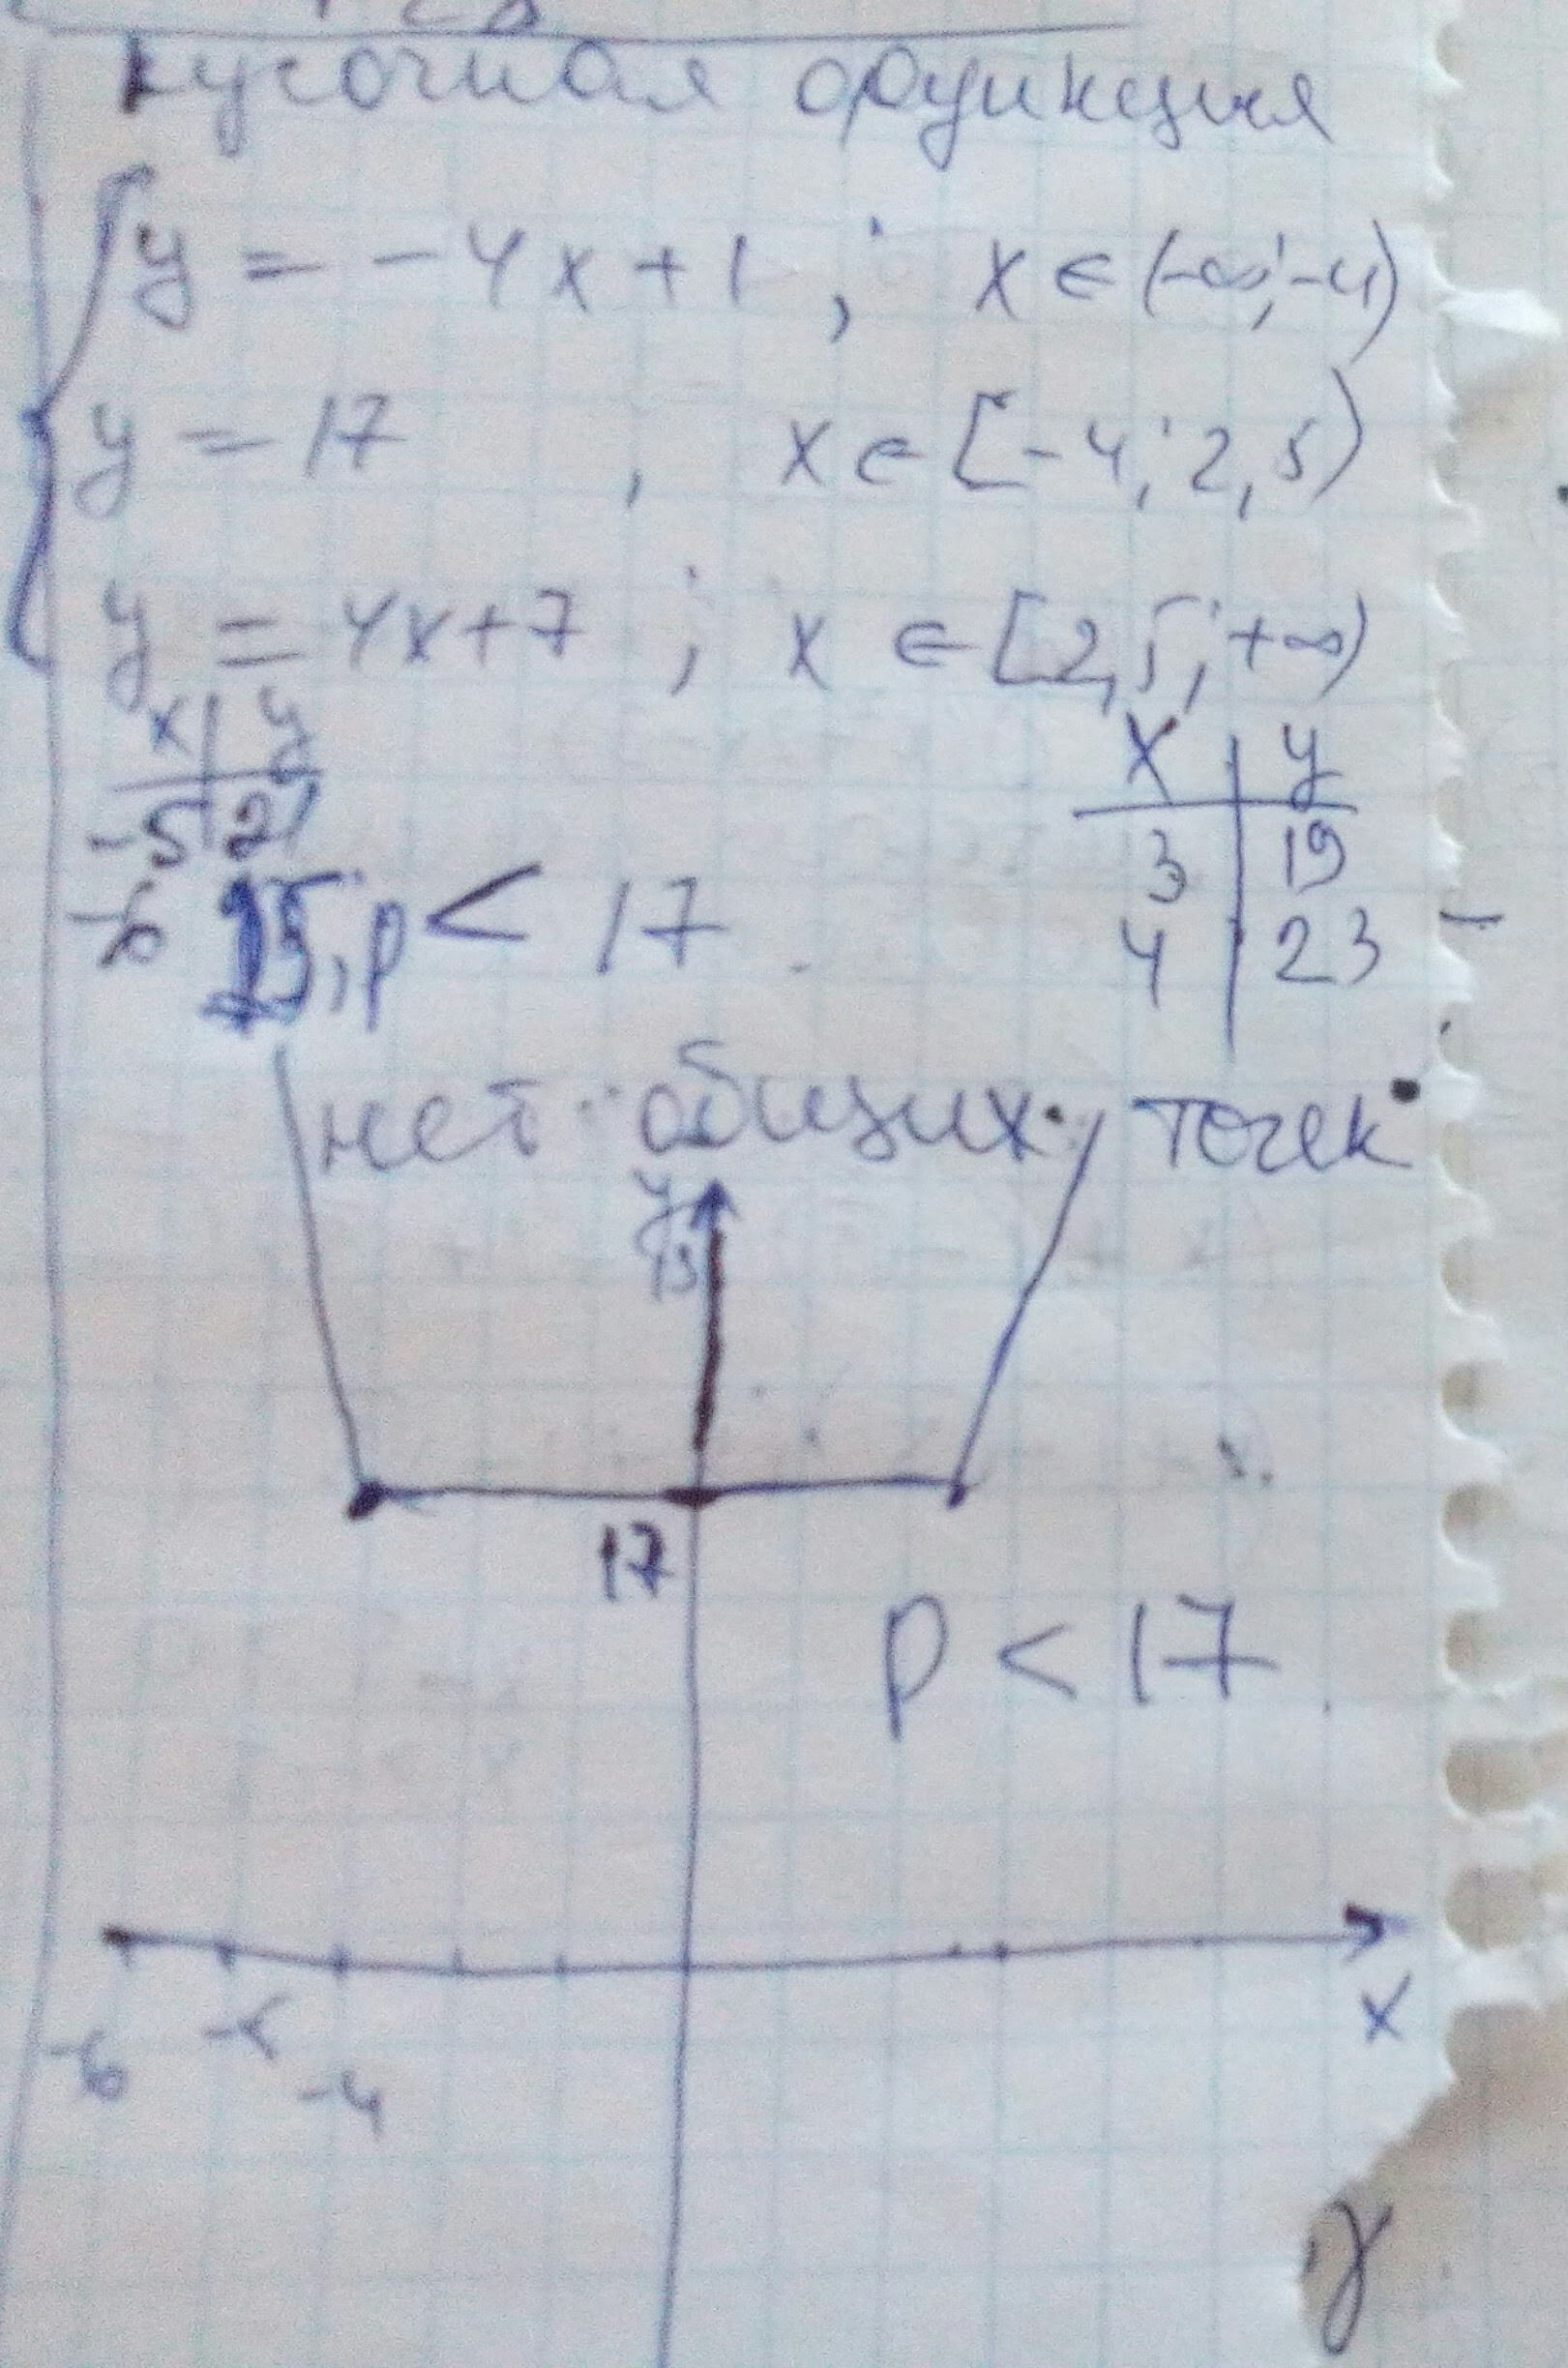 кусочная функция
y = -4x+1 ; x ∈ (-∞; -4)
y = 17 , x ∈ [-4; 2,5)
y = 4x+7 ; x ∈ [2,5; +∞)
x | y
-5 | 21
-6 25, p < 17
x | y
3 | 19
4 | 23
нет общих точек
y
17
p < 17
x
-6 -5 -4